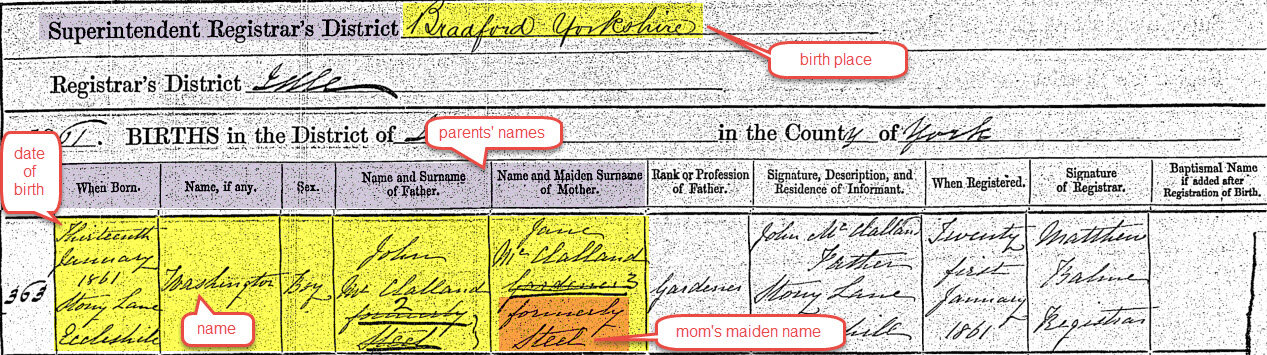 Superintendent Registrar's District Bradford Yorkshire
birth place
Registrar's District Idle
1861. BIRTHS in the District of
parents' names
in the County of York
date
of
birth
When Born.
Name, if any.
Sex.
Name and Surname
of Father.
Name and Maiden Surname
of Mother.
Rank or Profession
of Father.
Signature, Description, and
Residence of Informant.
When Registered.
Signature
of Registrar.
Baptismal Name
if added after
Registration of Birth.
363
Thirteenth
January
1861
Stony Lane
Eccleshill
Washington
name
Boy
John
Mc Clalland
formerly
Steel
Jane
Mc Clalland
Gardener
formerly
Steel
mom's maiden name
Gardener
John Mc Clalland
Father
Stony Lane
Twenty
first
January
1861
Matthew
Balme
Registrar